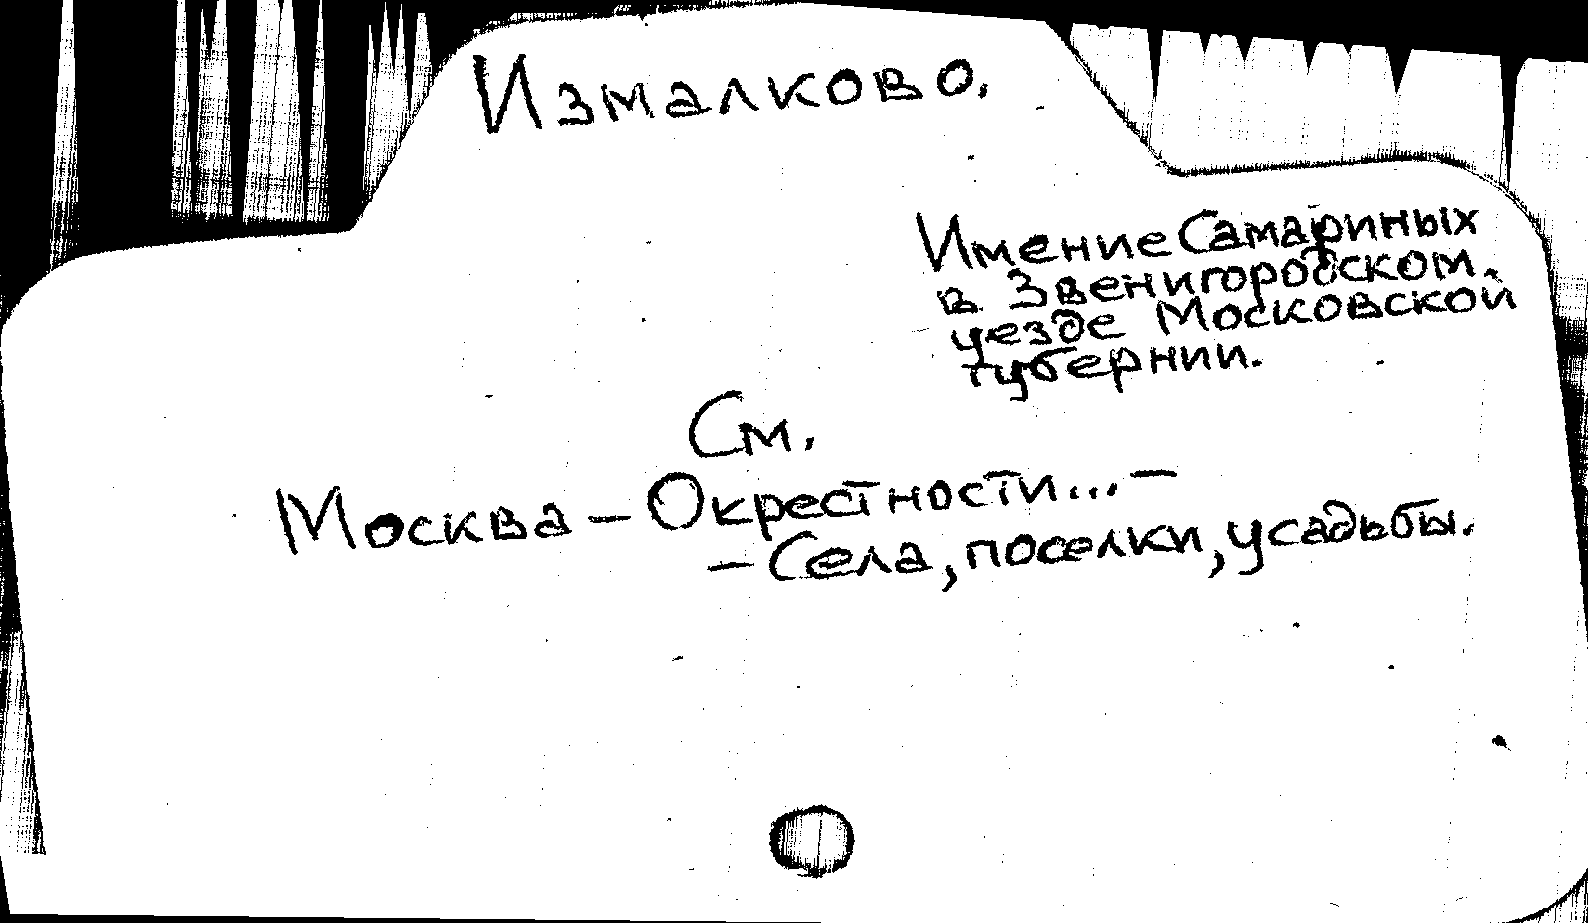 Измалково.
Имение Самариных
в Звенигородском.
уезде Московской
губернии.
См.
Москва – Окрестности... –
– Села, поселки, усадьбы.